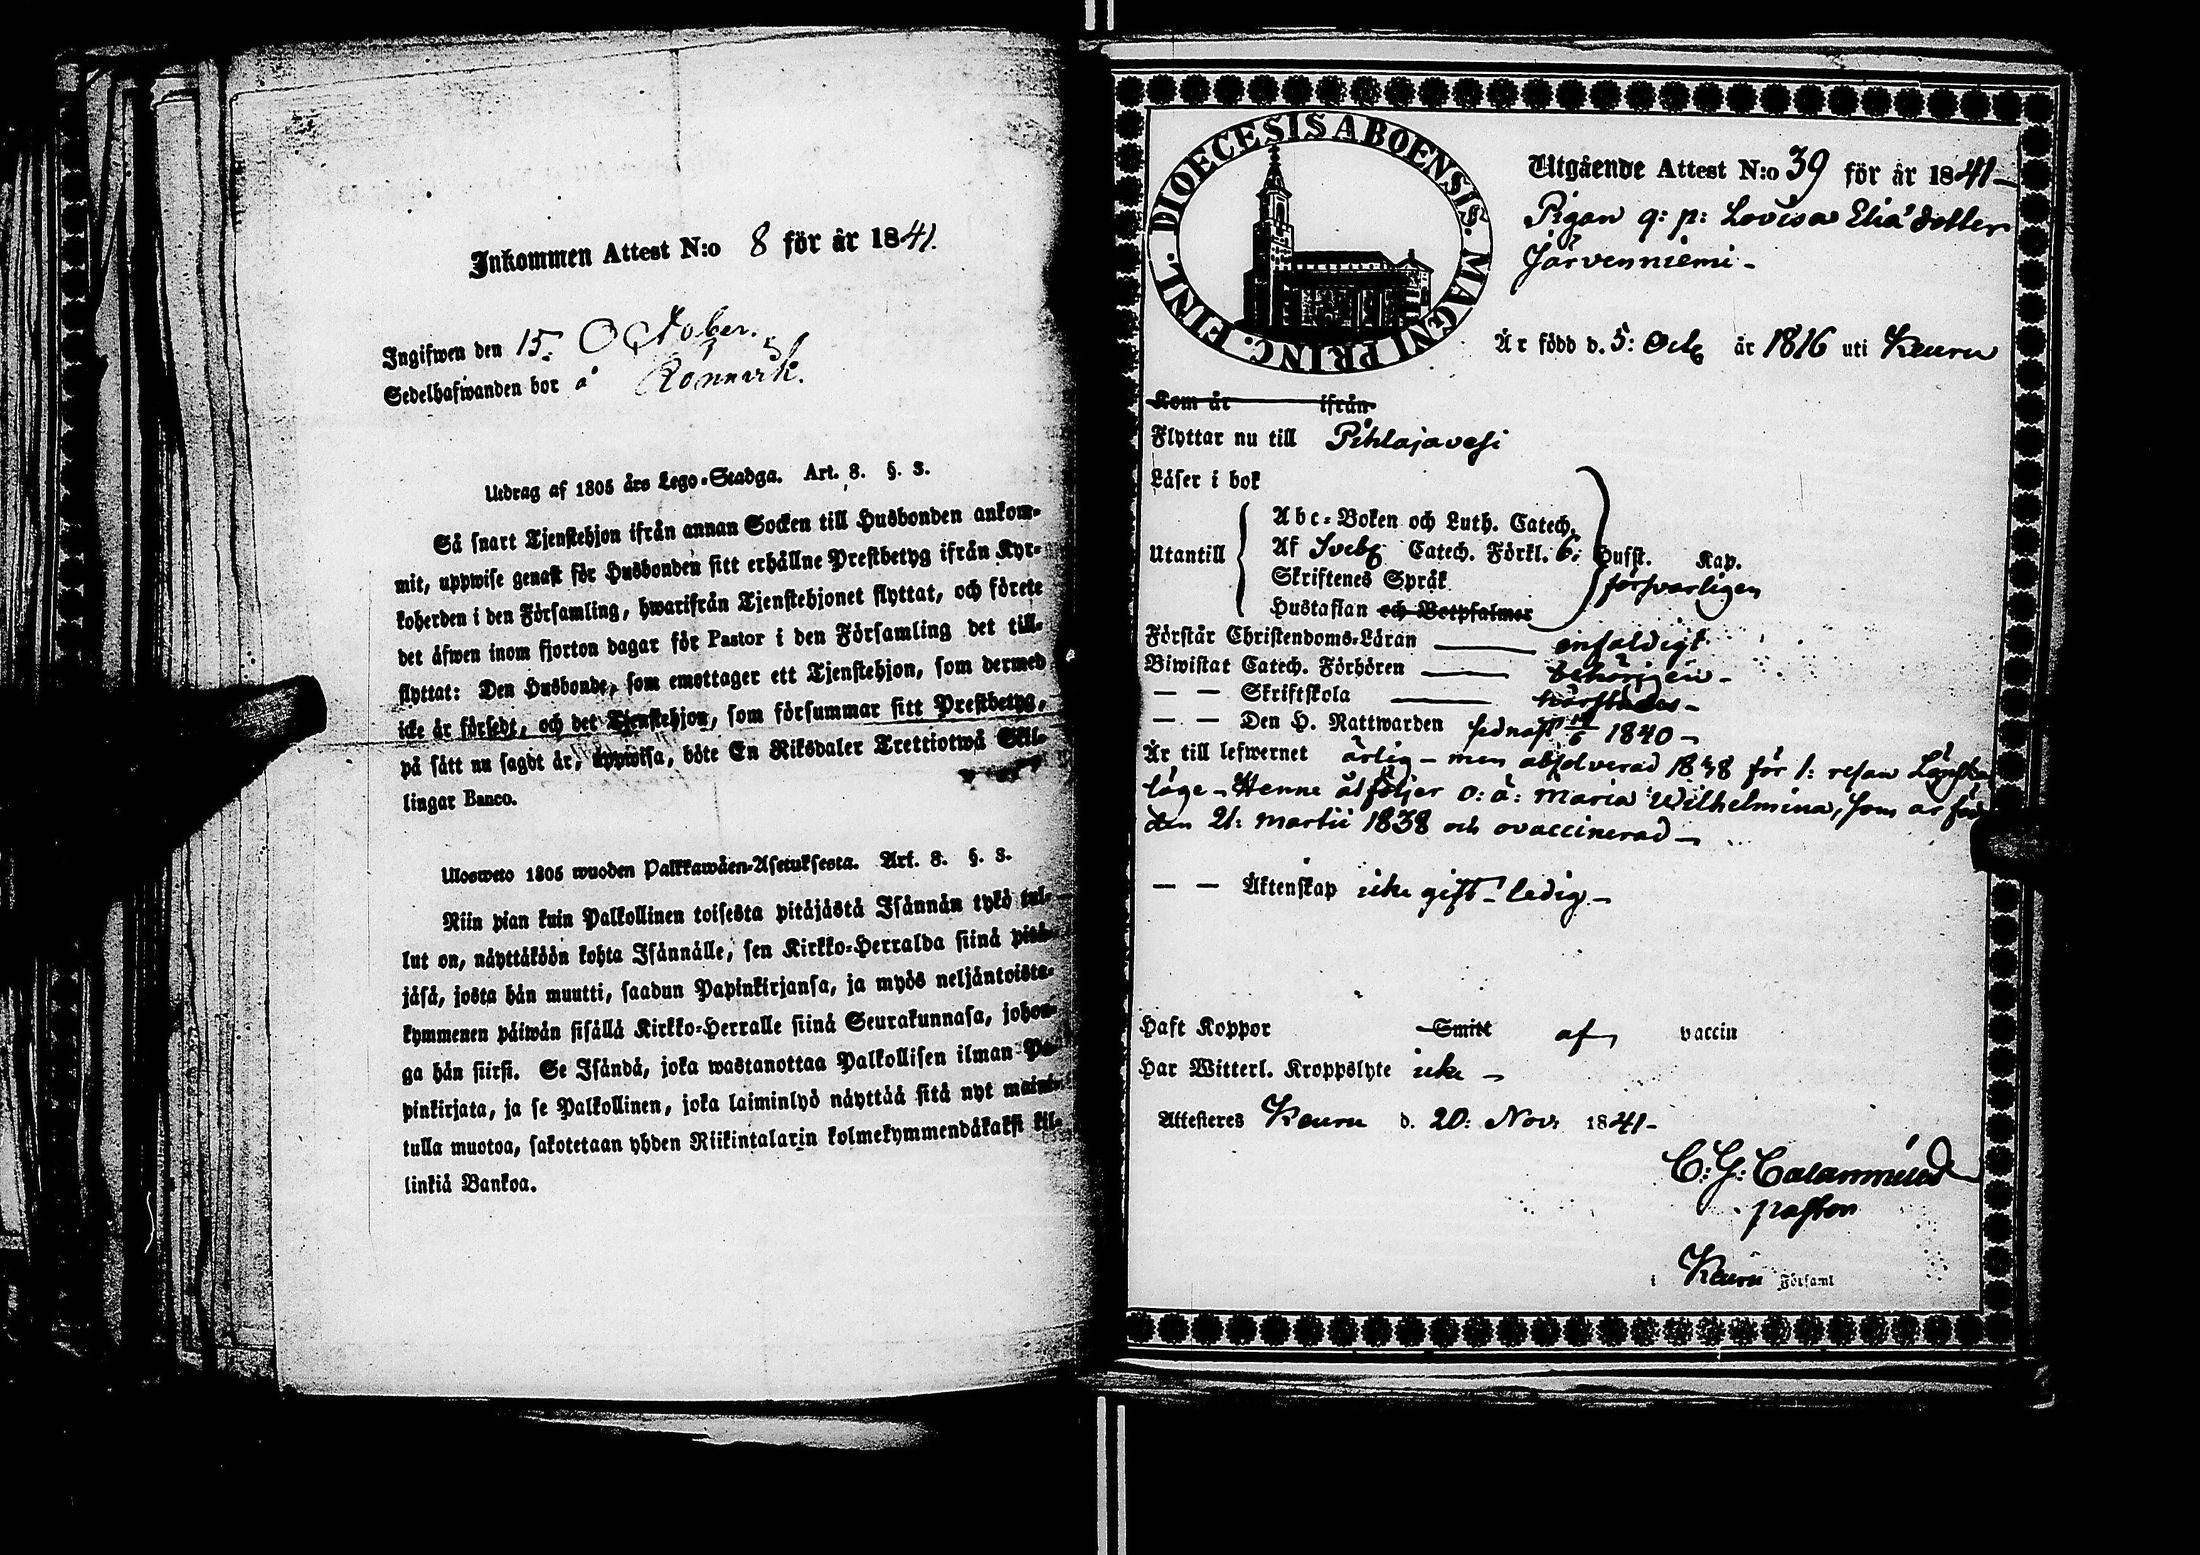 Inkommen Attest N:o 8 för år 1841.
Ingifwen den 15. October.
Sedelhafwanden bor å
Utdrag af 1805 års Lego-Stadga. Art. 8. §. 3.
Så snart Tjenstehjon ifrån annan Socken till Husbonden ankom-
mit, uppwise genast för Husbonden sitt erhållne Prestbetyg ifrån Kyr-
koherden i den Församling, hwarifrån Tjenstehjonet flyttat, och förete
det äfwen inom fjorton dagar för Pastor i den Församling det till-
flyttat: Den Husbonde, som emottager ett Tjenstehjon, som dermed
icke är försedt, och det Tjenstehjon, som försummar sitt Prestbetyg,
på sätt nu sagdt är, uppwisa, böte En Riksdaler Trettiotwå Skil-
lingar Banco.
Ulosweto 1805 wuoden Palkkawäen-Asetuksesta. Art. 8. §. 3.
Niin pian kuin Palkollinen toisesta pitäjästä Isännän tykö tul-
lut on, näyttäköön kohta Isännälle, sen Kirkko-Herralda siinä pitä-
jäsä, josta hän muutti, saadun Papinkirjansa, ja myös neljäntoista-
kymmenen päiwän sisällä Kirkko-Herralle siinä Seurakunnasa, johon-
ga hän siirsi. Se Isändä, joka wastanottaa Palkollisen ilman Pa-
pinkirjata, ja se Palkollinen, joka laiminlyö näyttää sitä nyt maini-
tulla muotoa, sakotetaan yhden Riikintalarin kolmekymmendäkaksi kil-
linkiä Bankoa.
DIOECESIS ABOENSIS. MAGNI PRINC. FINL.
Utgående Attest N:o 39 för år 1841 -
Pigan q: p: Lovisa Elia dotter
Järvenniemi -
Är född d. 5: Octb år 1816 uti Keuru
Kom år ifrån
Flyttar nu till Pihlajavesi
Läser i bok
Abc-Boken och Luth. Catech.
Utantill Af Sveb Catech. Förkl. 6: Hufst. Kap.
Skriftenes Språk försvarligen
Hustaflan och Botpsalmer
Förstår Christendoms-Läran enfaldigt
Biwistat Catech. Förhören behörigen -
— — Skriftskola
— — Den H. Nattwarden sednast 1840 -
Är till lefwernet ärlig - men absolverad 1838 för 1: resan Lönska
läge - Henne åtföljer o: ä: Maria Wilhelmina, som är föd
den 21: Martii 1838 och ovaccinerad -
— — Äktenskap icke gift - ledig -
Haft Koppor Smitt af vaccin
Har Witterl. Kroppslyte icke -
Attesteres Keuru d. 20: Nov: 1841 -
C: G: Calamnius
pastor
i Keuru Församl